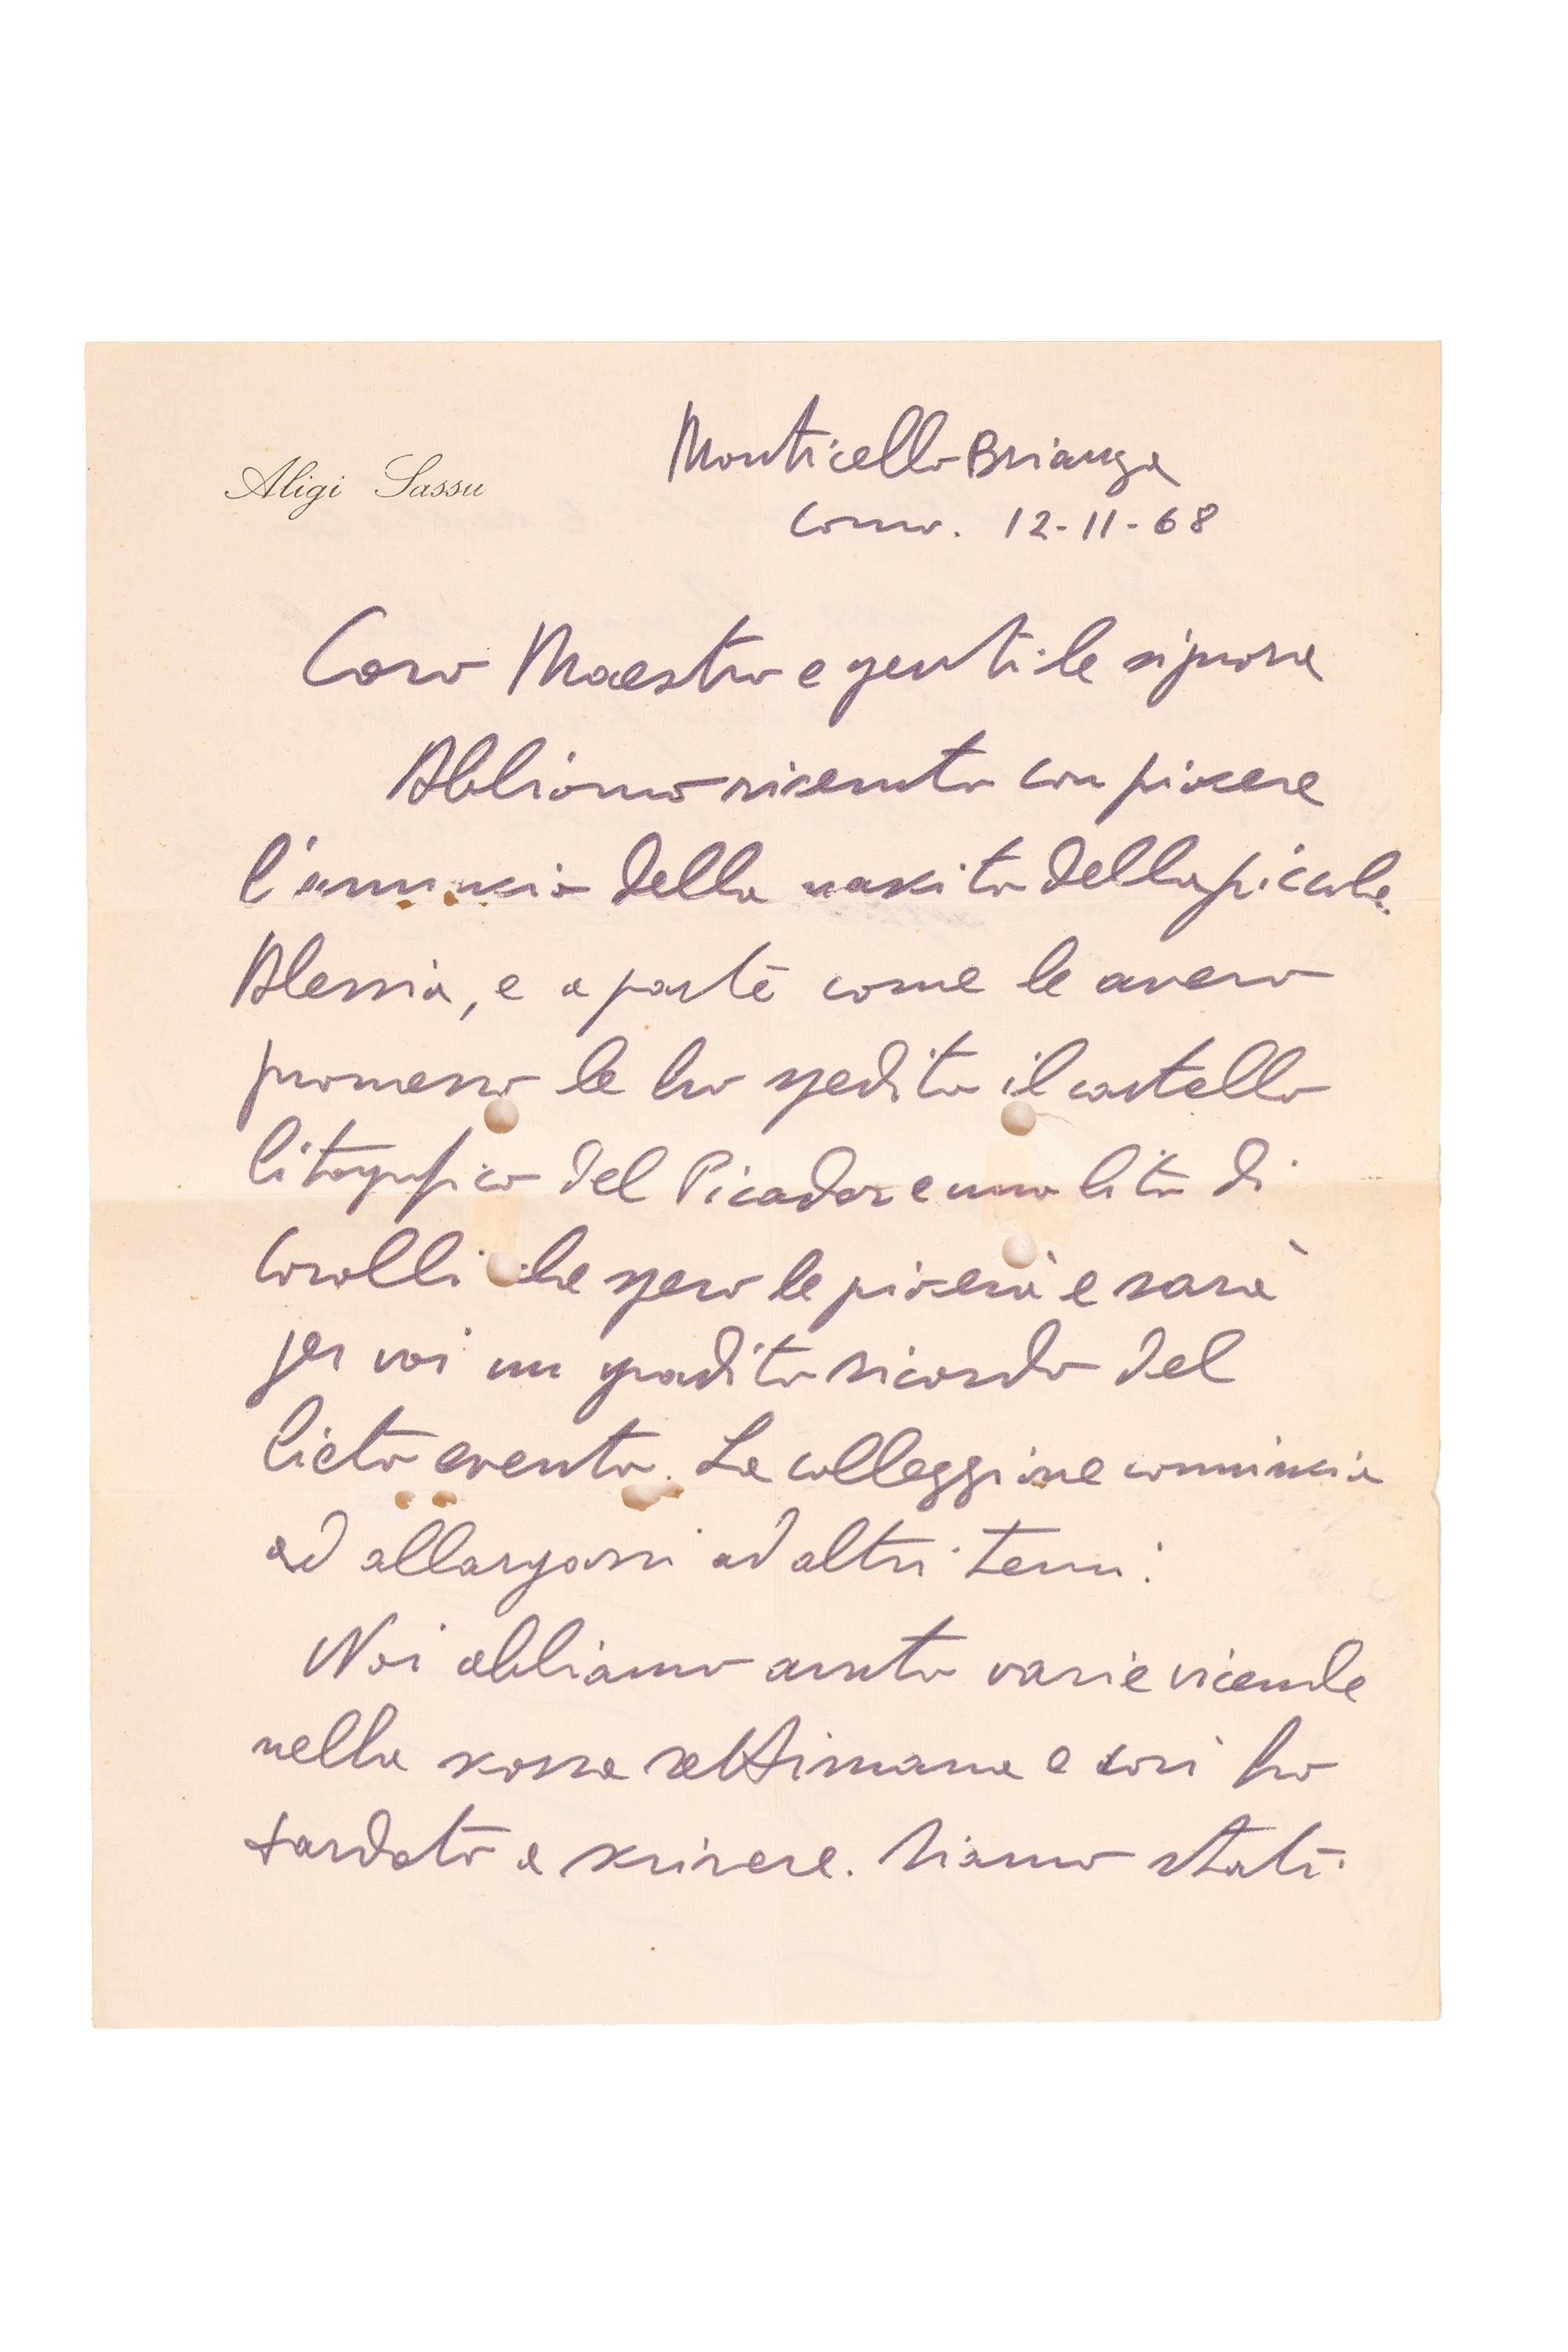 Aligi Sassu
Monticello Brianza
Como. 12-11-68
Caro Maestro e gentile signora
Abbiamo ricevuto con piacere
l'annuncio della nascita della piccola
Alessia, e a parte come le avevo
promesso le ho spedito il cartello
litografico del Picador e una lito di
Coralli che spero le piacerà e sarà
per voi un gradito ricordo del
lieto evento. La colleggione comincia
ad allargarsi ad altri temi!
Noi abbiamo avuto varie vicende
nella scorsa settimana e così ho
tardato a scrivere. Siamo stati